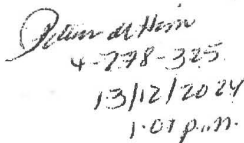 4-278-325
13/12/2024
1:01 p.m.